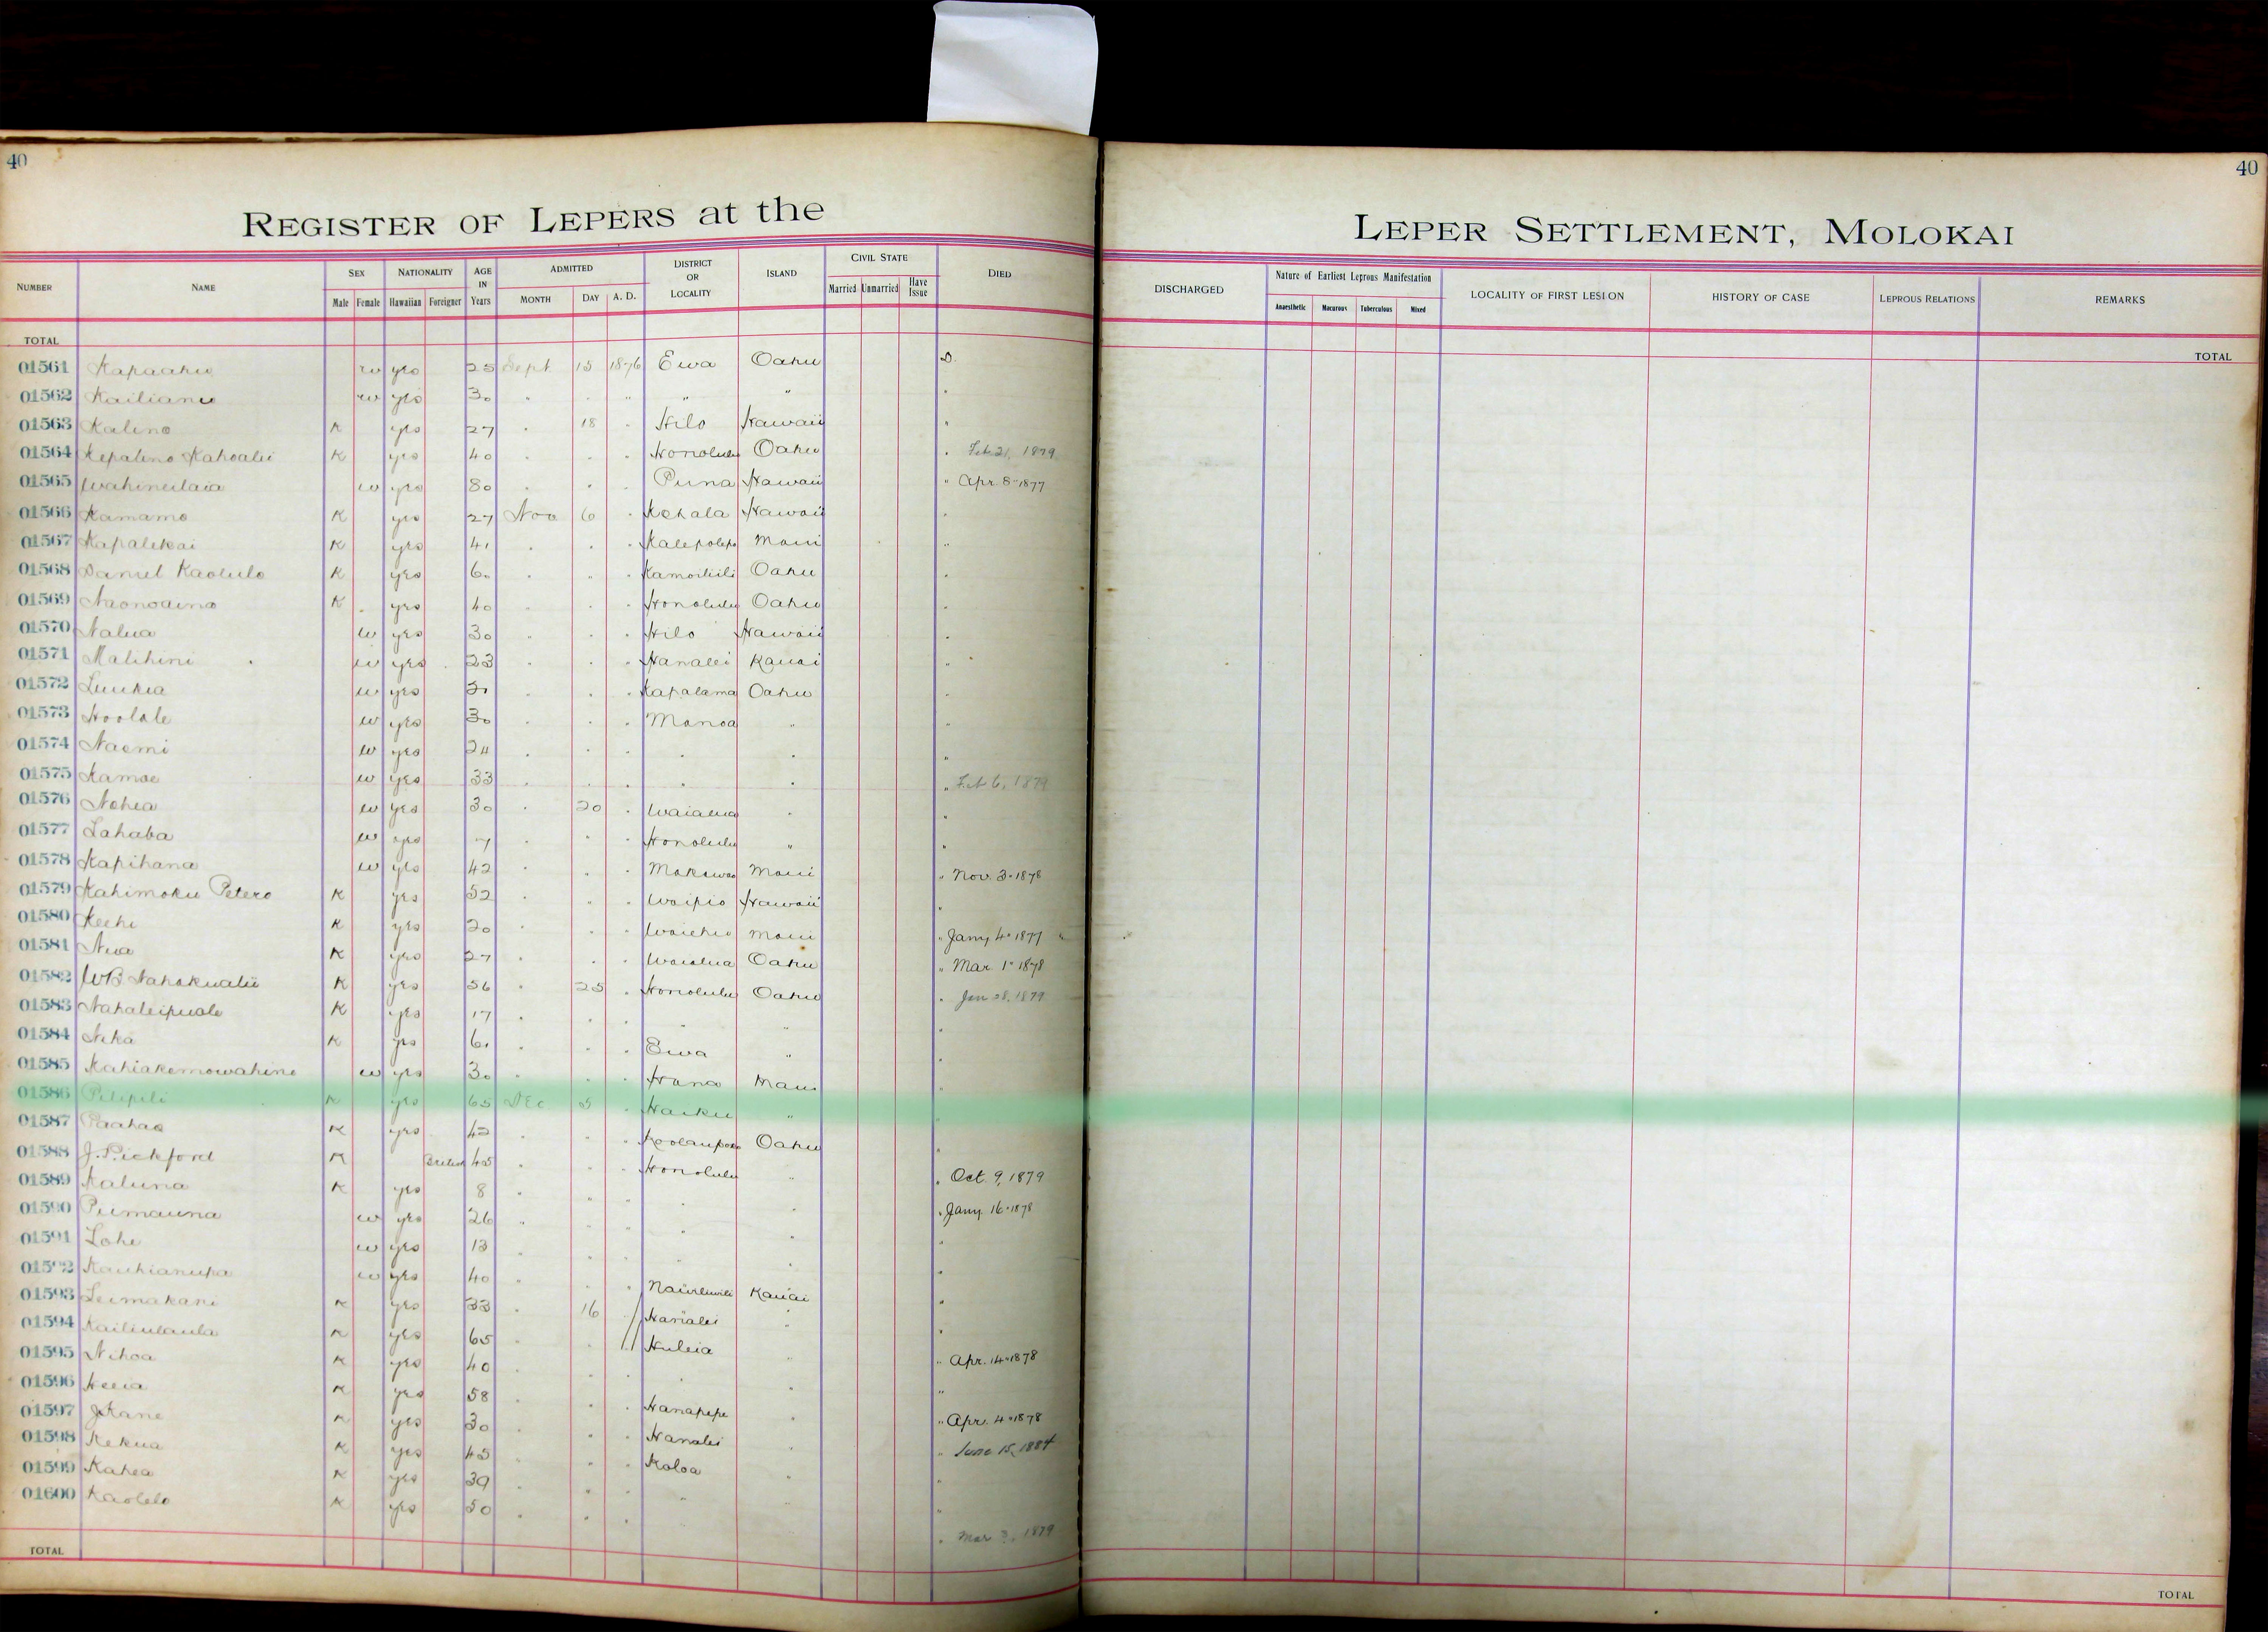 40
REGISTER OF LEPERS at the
NUMBER NAME SEX Male Female NATIONALITY Hawaiian Foreigner AGE IN Years ADMITTED MONTH DAY A. D. DISTRICT OR LOCALITY ISLAND CIVIL STATE Married Unmarried Have Issue DIED
TOTAL
01561 Kapaahu w yes 25 Sept 15 1876 Ewa Oahu D.
01562 Kailianu w yes 30 " " " " " "
01563 Kalino K yes 27 " 18 " Hilo Hawaii "
01564 Kepalino Kahoalii K yes 40 " " " Honolulu Oahu " Feb 21, 1879
01565 Wahineilaia w yes 80 " " " Puna Hawaii " Apr. 8 - 1877
01566 Kamamo K yes 27 Nov 6 " Kohala Hawaii "
01567 Kapalekai K yes 41 " " " Kalepolepo Maui "
01568 Daniel Kaolulo K yes 60 " " " Kamoiliili Oahu "
01569 Naonoaina K yes 40 " " " Honolulu Oahu "
01570 Nalua w yes 30 " " " Hilo Hawaii "
01571 Malihini w yes 23 " " " Hanalei Kauai "
01572 Luukia w yes 21 " " " Kapalama Oahu "
01573 Hoolale w yes 30 " " " Manoa " "
01574 Naomi w yes 24 " " " " " "
01575 Kamae w yes 33 " " " " " " Feb 6, 1879
01576 Nohea w yes 30 " 20 " Waialua " "
01577 Lahaba w yes 7 " " " Honolulu " "
01578 Kapihana w yes 42 " " " Makawao Maui " Nov. 3 - 1878
01579 Kahimoku Petero K yes 52 " " " Waipio Hawaii "
01580 Keehi K yes 20 " " " Waiehu Maui " Jany 4 - 1877 "
01581 Niua K yes 27 " " " Waialua Oahu " Mar. 1 - 1878
01582 WB Nahokualii K yes 56 " 25 " Honolulu Oahu " Jan 28, 1879
01583 Nahaleipuale K yes 17 " " " " " "
01584 Nika K yes 61 " " " Ewa " "
01585 Kahiakemowahine w yes 30 " " " Hana Maui "
01586 Pilipili K yes 65 Dec 5 " Haiku " "
01587 Paahao K yes 42 " " " Koolaupoko Oahu "
01588 J. Pickford K British 45 " " " Honolulu " " Oct. 9, 1879
01589 Kaluna K yes 8 " " " " " " Jany 16 - 1878
01590 Puimauna w yes 26 " " " " " "
01591 Lohe w yes 13 " " " " " "
01592 Kauhianupa w yes 40 " " " Nawiliwili Kauai "
01593 Leimakani K yes 33 " 16 " Hanalei " "
01594 Kailiulaula K yes 65 " " " Huleia " " Apr. 14 - 1878
01595 Nihoa K yes 40 " " " " " "
01596 Heeia K yes 58 " " " Hanapepe " " Apr. 4 - 1878
01597 J Kane K yes 30 " " " Hanalei " " June 15, 1884
01598 Kekua K yes 45 " " " Koloa " "
01599 Kahea K yes 39 " " " " " "
01600 Kaolelo K yes 50 " " " " Mar 3, 1879
TOTAL
40
LEPER SETTLEMENT, MOLOKAI
DISCHARGED Nature of Earliest Leprous Manifestation Anaesthetic Macurous Tuberculous Mixed LOCALITY OF FIRST LESION HISTORY OF CASE LEPROUS RELATIONS REMARKS
TOTAL
TOTAL